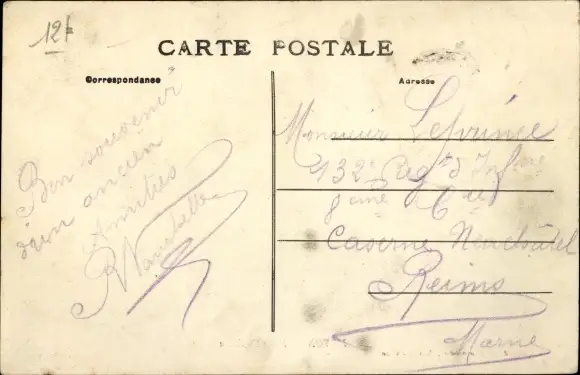 12f
CARTE POSTALE
Correspondance
Adresse
Bon souvenir
d'un ancien
Amitiés
Monsieur Leprince
132e Regt d'Infrie
8eme Cie
Caserne Neuchâtel
Reims
Marne